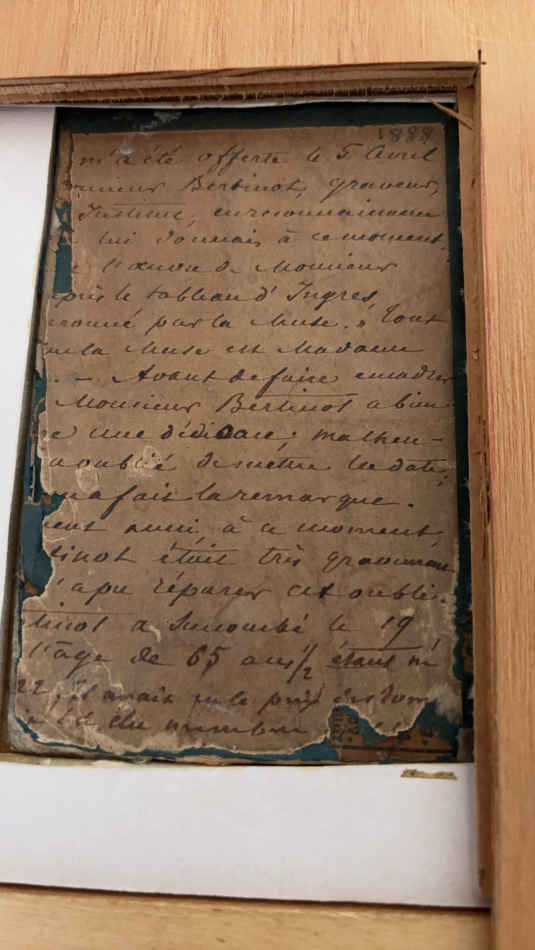 1888
m'a été offerte le 5 Avril
Monsieur Bertinot, graveur,
Institut, en reconnaissance
lui donnais, à ce moment,
l'œuvre de Monsieur
après le tableau d'Ingres,
par la Muse. » Tout
la Muse est Madame
. — Avant de faire encadrer
Monsieur Bertinot a bien
une dédicace; malheu-
a oublié de mettre la date,
a fait la remarque.
aussi, à ce moment,
tinot était très gravement
a pu réparer cet oubli.
tinot a succombé le 19
l'âge de 65 ans 1/2 étant né
22, il avait eu le prix de Rom
élu membre